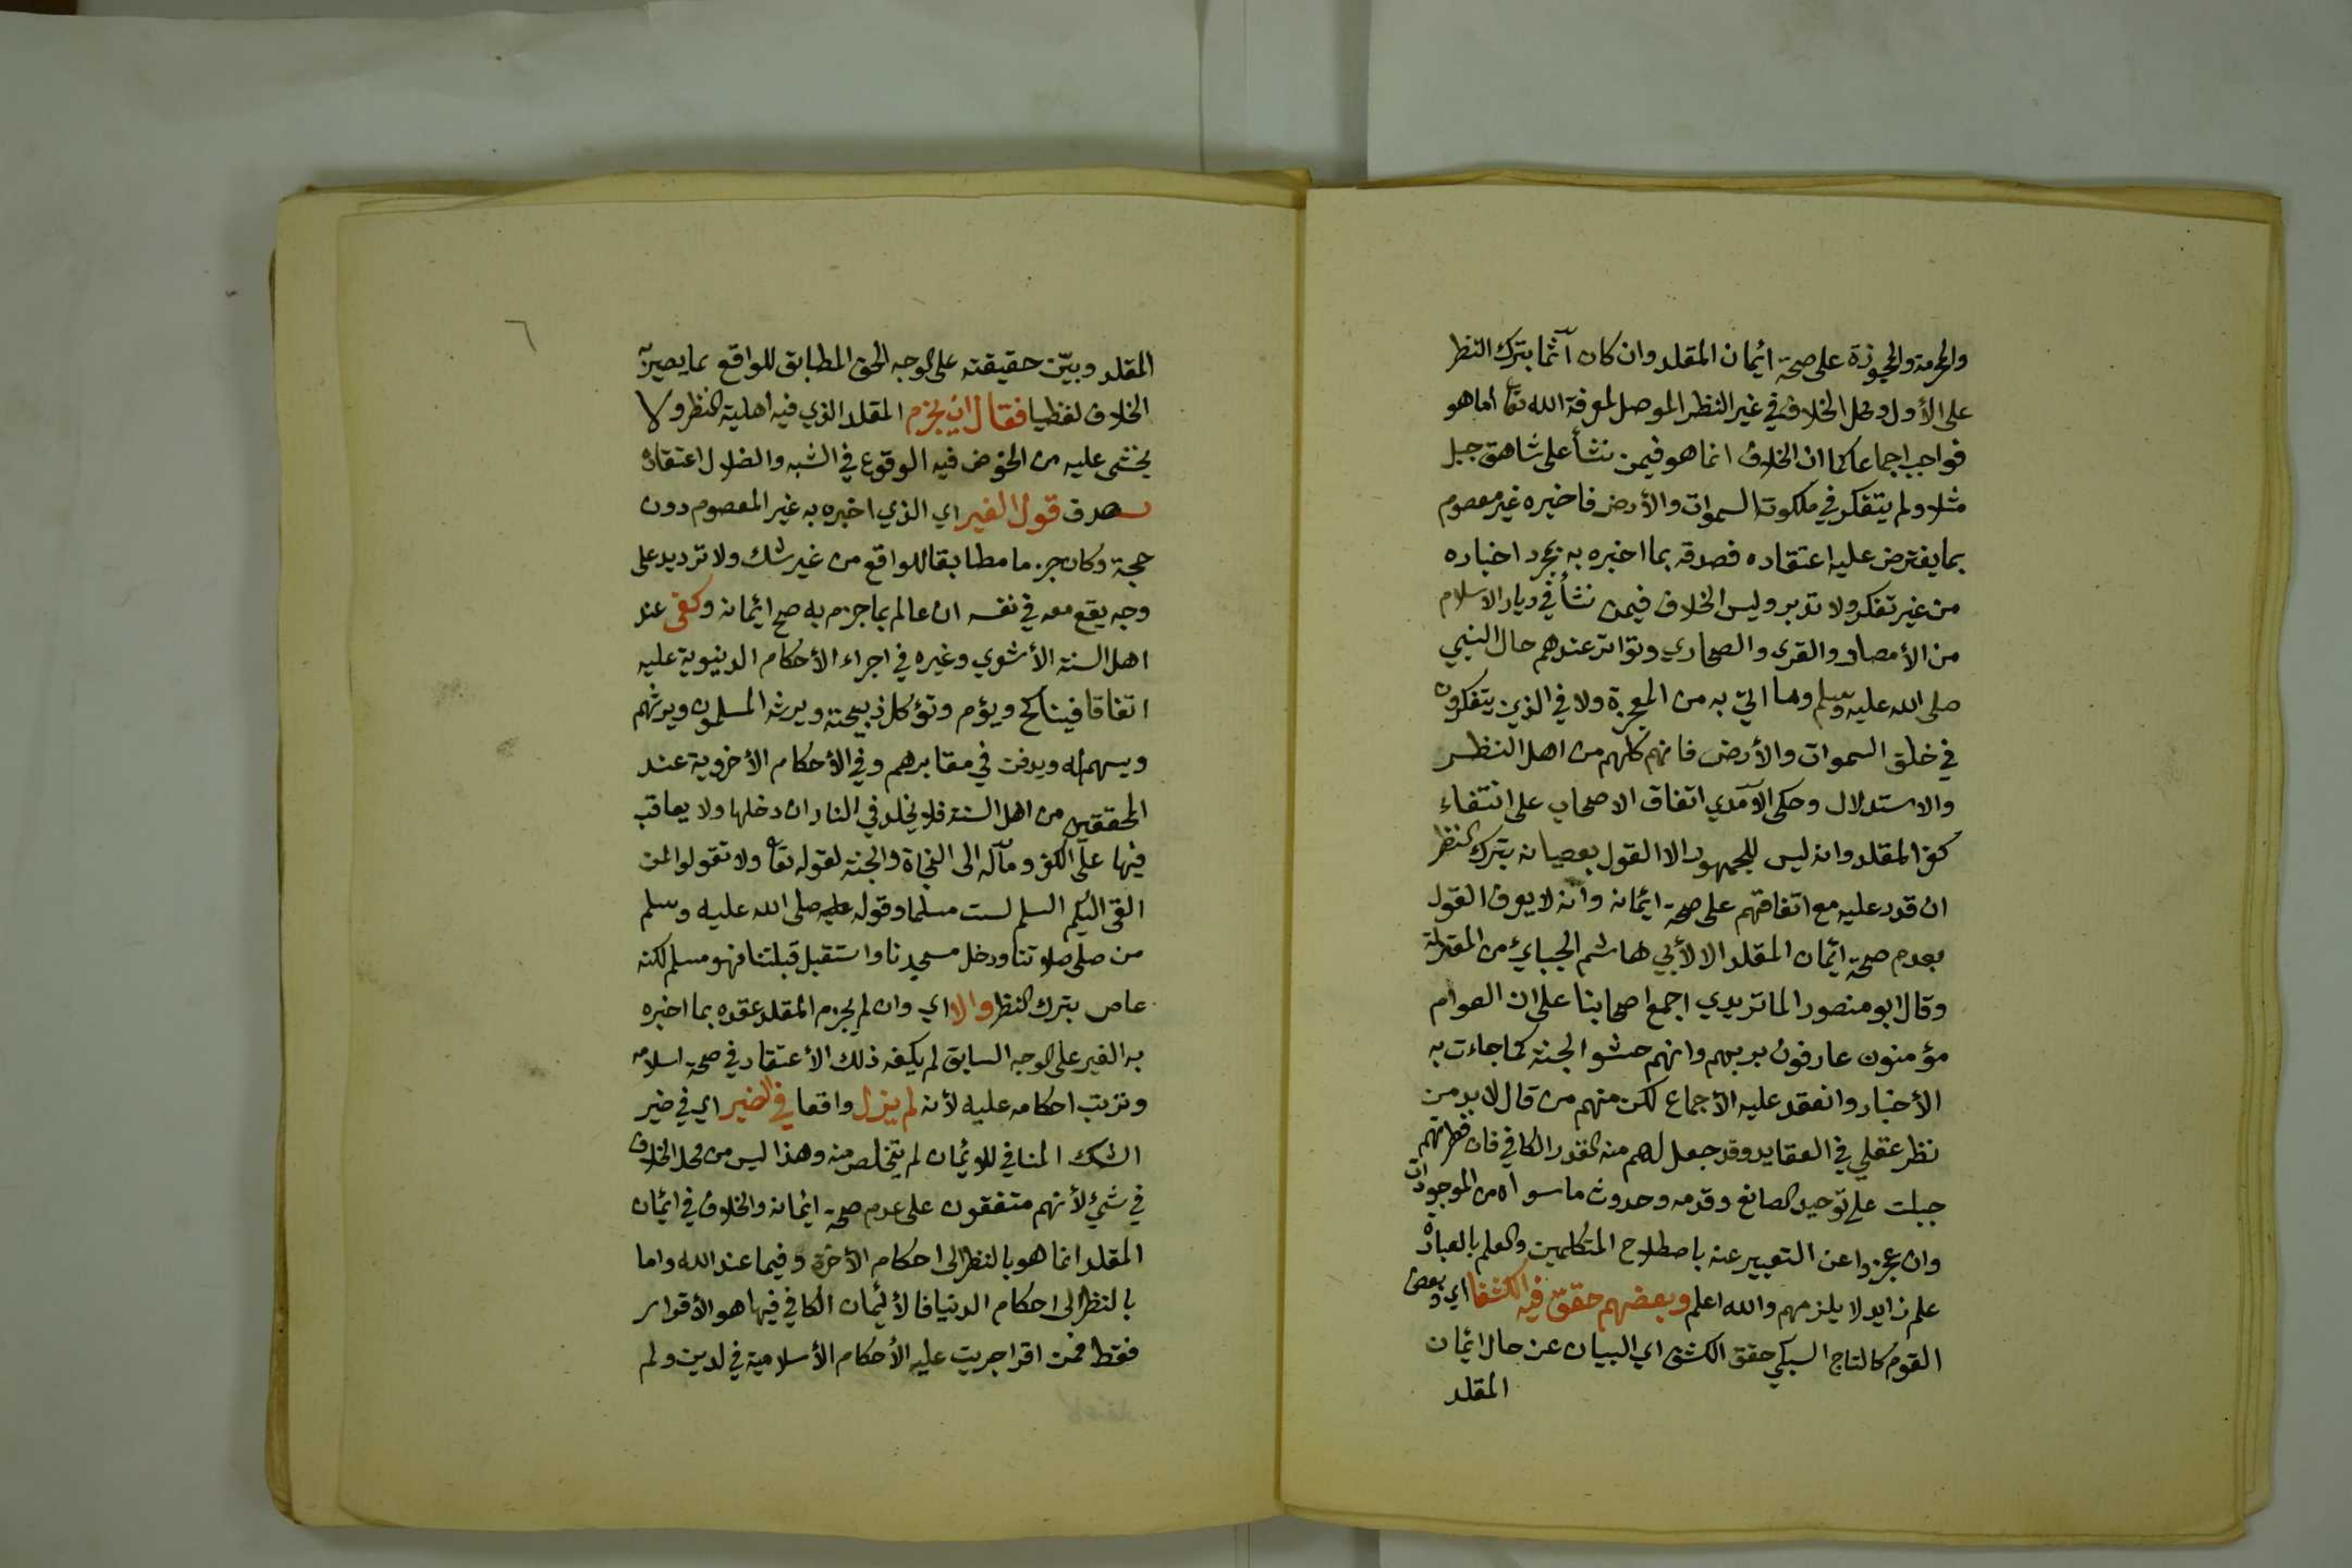 والحرمة والمجوزة على صحة ائمان المقلد وان كان آثما بترك النظر
على الأول ومحل الخلاف في غير النظر الموصل لمعرفة الله تعا أما هو
فواجب اجماعا كما ان الخلاف انما هو فيمن نشأ على شاهق جبل
مثلا ولم يتفكر في ملكوت السموات والأرض فاخبره غير معصوم
بما يفترض عليه اعتقاده فصدقه بما اخبره به بمجرد اخباره
من غير تفكر ولا تدبر وليس الخلاف فيمن نشأ في ديار الاسلام
من الأمصار والقرى والصحاري وتواتر عندهم حال النبي
صلى الله عليه وسلم وما اتي به من المعجزة ولا في الذين يتفكرون
في خلق السموات والأرض فانهم كلهم من اهل النظر
والاستدلال وحكى الآمدي اتفاق الاصحاب على انتفاء
كفر المقلد وانه ليس للجمهور الا القول بعصيانه بترك النظر
ان قدر عليه مع اتفاقهم على صحة ائمانه وانه لا يعرف القول
بعدم صحة ائمان المقلد الا لأبي هاشم الجبايء من المعتزلة
وقال ابو منصور الماتريدي اجمع اصحابنا على ان العوام
مؤمنون عارفون بربهم وانهم حشو الجنة كما جاءت به
الأخبار وانعقد عليه الأجماع لكن منهم من قال لا بد من
نظر عقلي في العقايد وقد جعل لهم منه القدر الكافي فان فطرتهم
جبلت على توحيد الصانع وقدمه وحدوث ما سواه من الموجودات
وان عجزوا عن التعبير عنه باصطلاح المتكلمين والعلم بالعبارة
علم زايد لا يلزمهم والله اعلم وبعضهم حقق فيه الكشفا اي وبعض
القوم كالتاج السبكي حقق الكشف اي البيان عن حال ائمان
المقلد
٦
المقلد وبيّن حقيقته على الوجه الحق المطابق للواقع بما يصير به
الخلاف لفظيا فقال ان يجزم المقلد الذي فيه اهلية النظر ولا
يخشى عليه من الخوض فيه الوقوع في الشبه والضلال اعتقاده
بصدق قول الغير اي الذي اخبره به غير المعصوم دون
حجة وكان جزما مطابقا للواقع من غير شك ولا ترديد على
وجه يقع معه في نفسه ان عالم بما جزم به صح ائمانه وكفى عند
اهل السنة الأشعري وغيره في اجراء الأحكام الدينوية عليه
اتفاقا فيناكح ويؤم وتؤكل ذبيحتة ويرثه المسلمون ويرثهم
ويسهم له ويدفن في مقابرهم وفي الأحكام الأخروية عند
المحققين من اهل السنة فلا يخلد في النار ان دخلها ولا يعاقب
فيها على الكفر ومآله الى النجاة والجنة لقوله تعا ولا تقولوا لمن
القى اليكم السلم لست مسلما وقوله عليه صلى الله عليه وسلم
من صلى صلاتنا ودخل مسجدنا واستقبل قبلتنا فهو مسلم لكنه
عاص بترك النظر والا اي وان لم يجزم المقلد عقده بما اخبره
به الغير على الوجه السابق لم يكفه ذلك الأعتقاد في صحة اسلامه
وترتب احكامه عليه لأنه لم يزل واقعا في الضير اي في ضير
الشك المنافي للائمان لم يتخلص منه وهذا ليس من محل الخلاف
في شيء لأنهم متفقون على عدم صحة ائمانه والخلاف في ائمان
المقلد انما هو بالنظر الى احكام الأخرة وفيما عند الله واما
بالنظر الى احكام الدنيا فالأئمان الكافي فيها هو الأقرار
فقط فمن اقر اجريت عليه الأحكام الأسلامية في لدين ولم